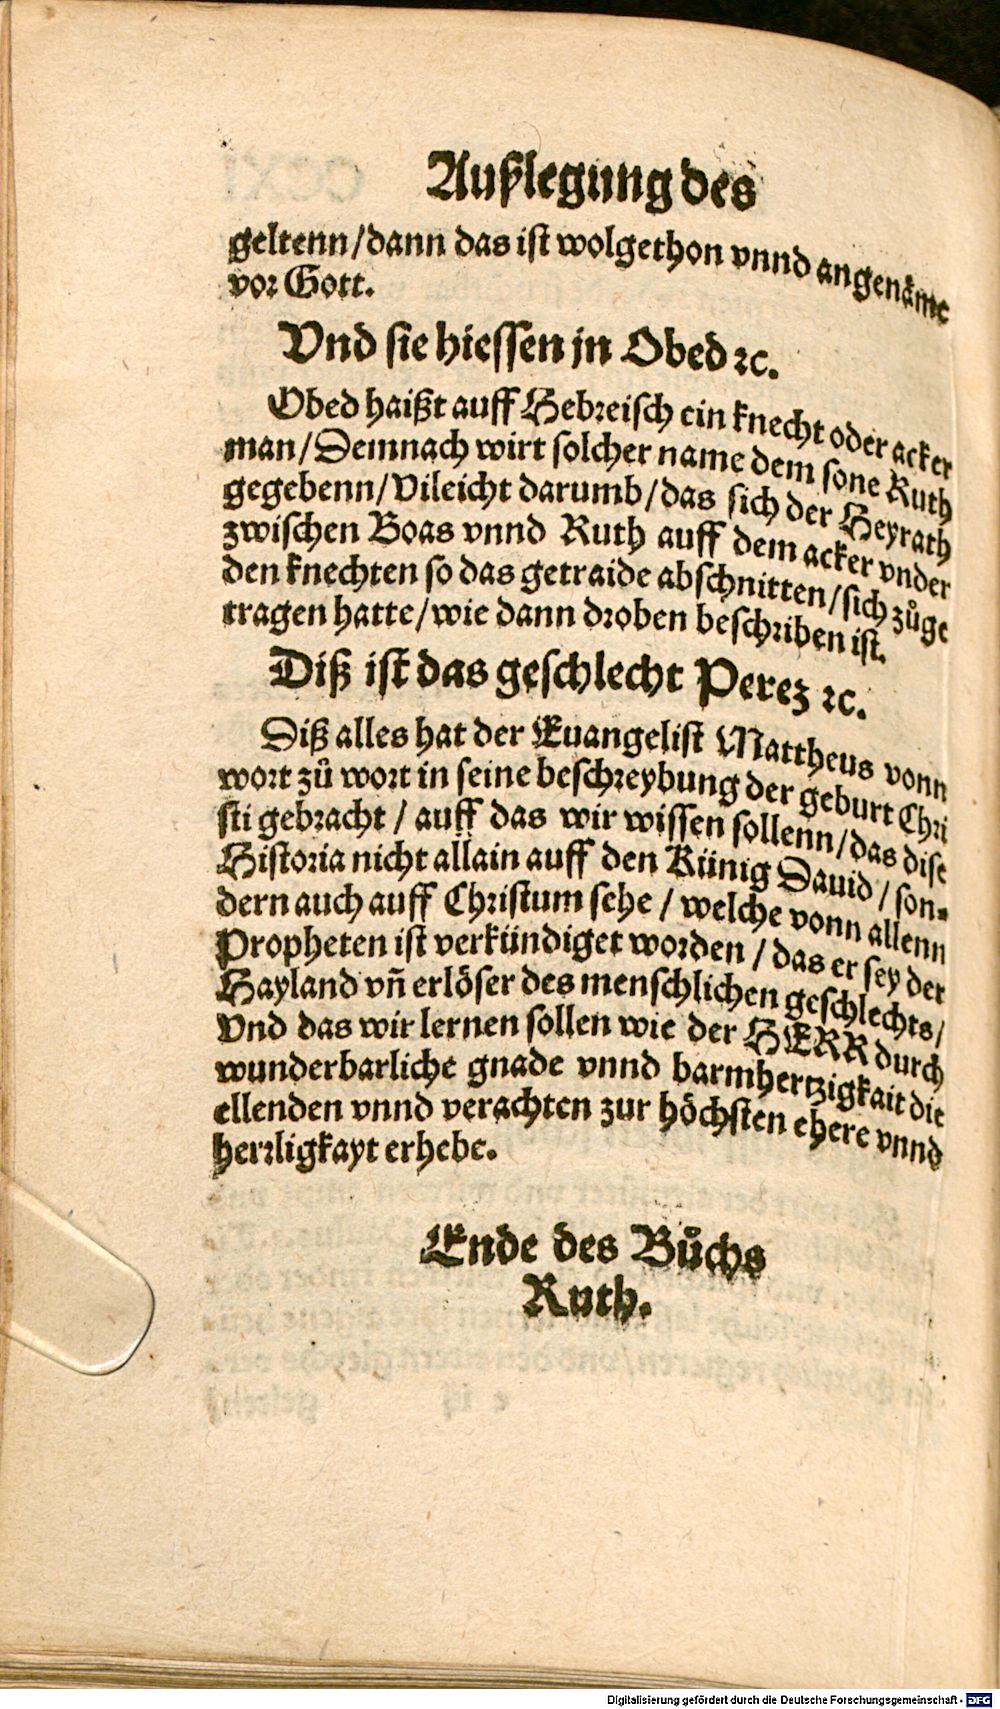 Außlegung des
geltenn/dann das ist wolgethon vnnd angenäme
vor Gott.
Vnd sie hiessen jn Obed ꝛc.
Obed haißt auff Hebreisch ein knecht oder acker
man/Demnach wirt solcher name dem sone Ruth
gegebenn/Vileicht darumb/das sich der Heyrath
zwischen Boas vnnd Ruth auff dem acker vnder
den knechten so das getraide abschnitten/sich zůge
tragen hatte/wie dann droben beschriben ist.
Diß ist das geschlecht Perez ꝛc.
Diß alles hat der Euangelist Mattheus vonn
wort zů wort in seine beschreybung der geburt Chri
sti gebracht / auff das wir wissen sollenn/das dise
Historia nicht allain auff den Künig Dauid / son-
dern auch auff Christum sehe / welche vonn allenn
Propheten ist verkündiget worden / das er sey der
Hayland vñ erlöser des menschlichen geschlechts/
Vnd das wir lernen sollen wie der HERR durch
wunderbarliche gnade vnnd barmhertzigkait die
ellenden vnnd verachten zur höchsten ehere vnnd
herrligkayt erhebe.
Ende des Bůchs
Ruth.
Digitalisierung gefördert durch die Deutsche Forschungsgemeinschaft - DFG